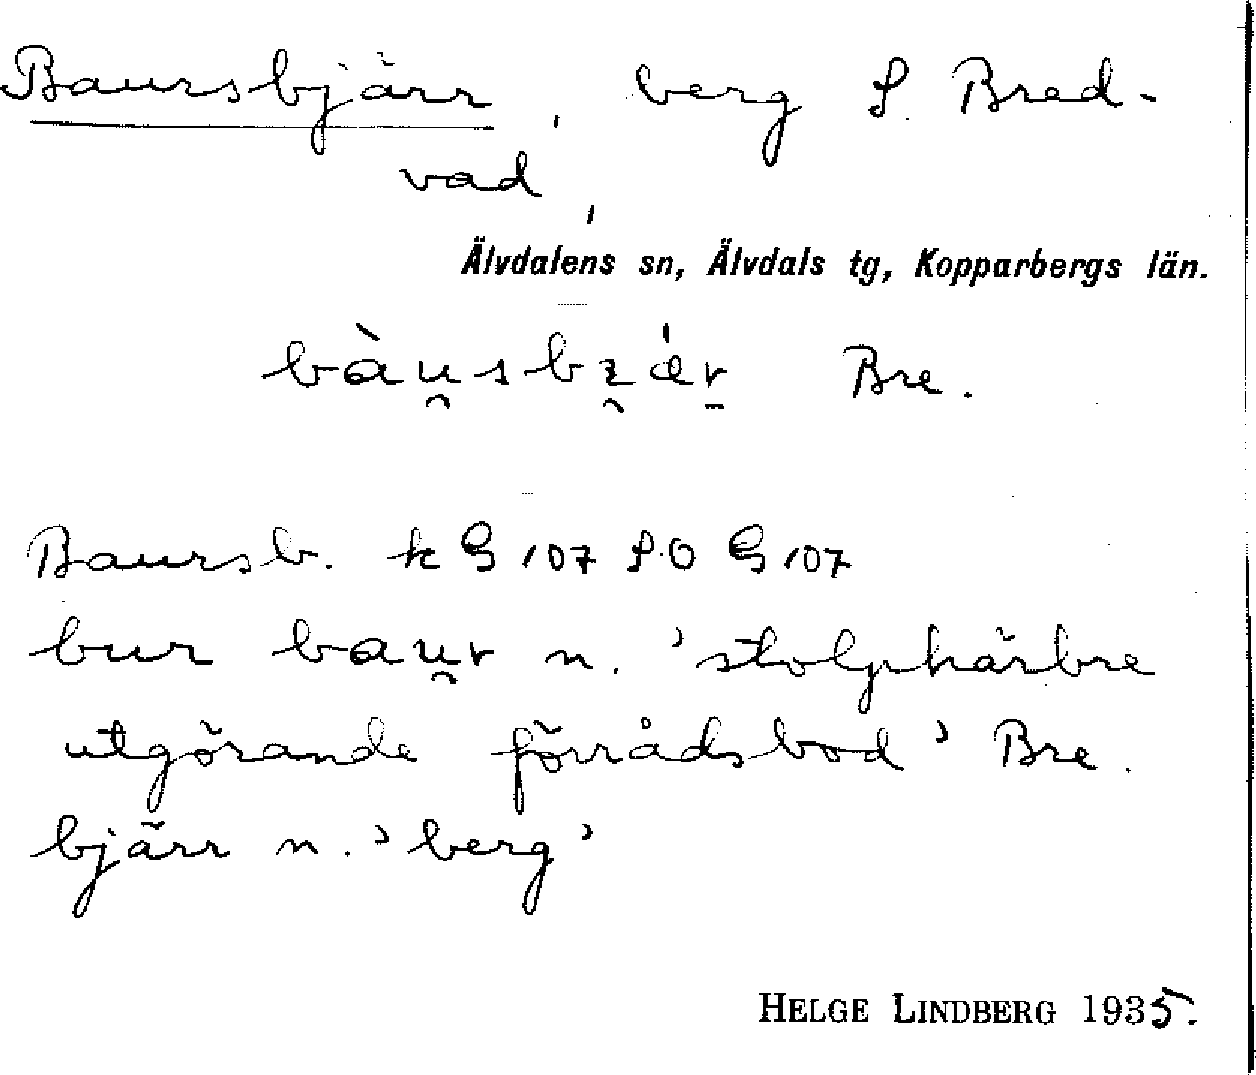 Baursbjärr, berg S. Bred-
vad,
Älvdalens sn, Älvdals tg, Kopparbergs län.
bàu̯sbı̯ǽr̠ Bre.
Baursb. k G 107 S.O G 107
bur bau̯r n. 'stolphärbre
utgörande förrådsbod' Bre.
bjärr n. 'berg'
HELGE LINDBERG 1935.